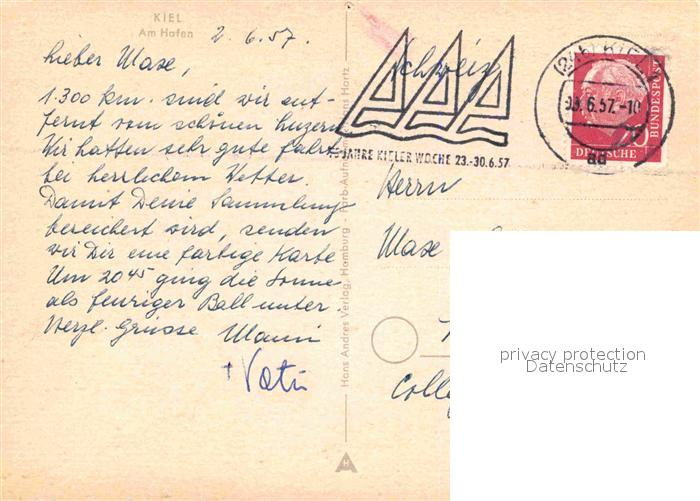 KIEL
Am Hafen
2.6.57.
Lieber Max,
1.300 km. sind wir ent-
fernt vom schönen Luzern
Wir hatten sehr gute Fahrt
bei herrlichem Wetter.
Damit Deine Sammlung
bereichert wird, senden
wir Dir eine farbige Karte
Um 20 45 ging die Sonne
als feuriger Ball unter.
Herzl. Grüsse Mami
+ Vati
Hans Andres Verlag, Hamburg
Hans Hartz
H
Schweiz
JAHRE KIELER WOCHE 23.-30.6.57
(24b) KIEL
03.6.57.-10
ad
DEUTSCHE
BUNDESPOST
Herrn
Max
privacy protection
Datenschutz